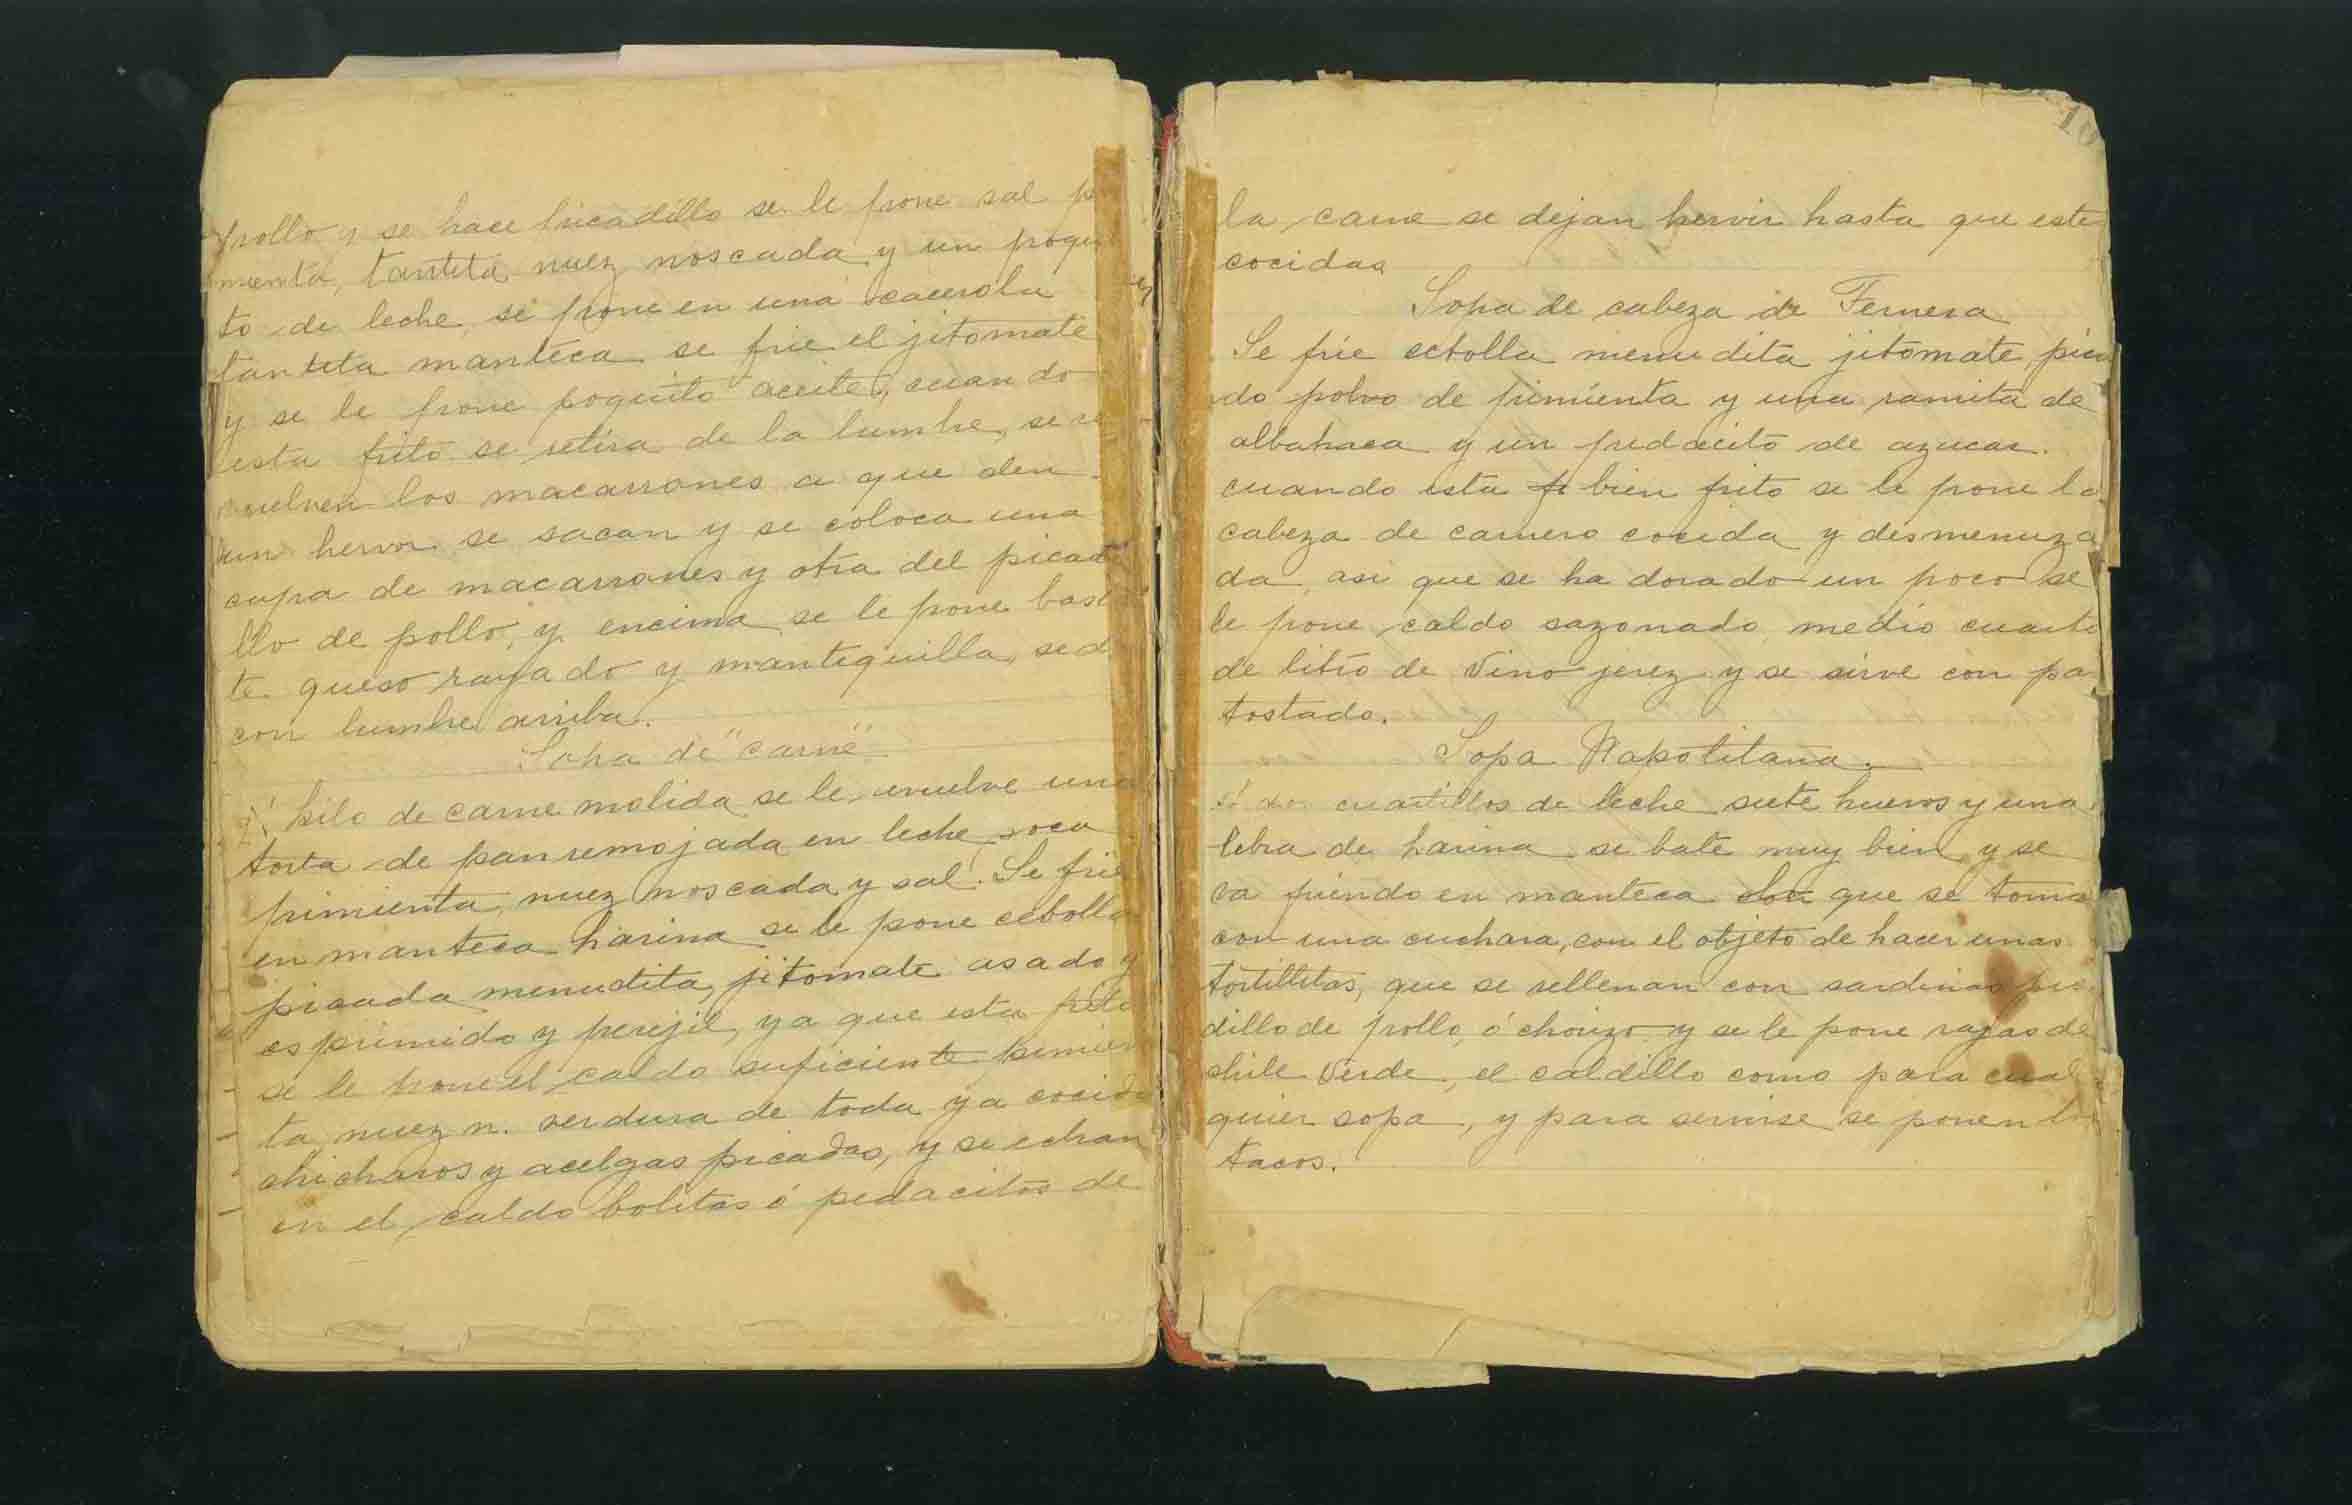 pollo y se hace picadillo se le pone sal p
mienta, tantita nuez noscada y un poqui
to de leche, se pone en una cacerola
tantita manteca se frie el jitomate
y se le pone poquito aceite, cuando
esta frito se retira de la lumbre, se re
vuelven los macarrones a que den
un hervor se sacan y se coloca una
capa de macarrones y otra del picad
llo de pollo, y encima se le pone bast
te queso rayado y mantequilla, se d
con lumbre arriba.
Sopa de "carne"
kilo de carne molida se le revuelve una
torta de pan remojada en leche, poca
pimienta, nuez noscada, y sal. Se frie
en manteca harina se le pone cebolla
picada menudita, jitomate asado y
esprimido y perejil, ya que esta frito
se le pone el caldo suficiente pimien
ta, nuez n. verdura de toda ya cocida
chicharos y acelgas picadas, y se echan
en el caldo bolitas ó pedacitos de
10
la carne se dejan hervir hasta que este
cocidas
Sopa de cabeza de Ternera
Se frie cebolla menudita jitomate, pica
do polvo de pimienta y una ramita de
albahaca y un pedacito de azucar.
cuando esta bien frito se le pone la
cabeza de carnero cocida y desmenuza
da, asi que se ha dorado un poco se
le pone caldo sazonado, medio cuarto
de litro de Vino jerez y se sirve con pa
tostado.
Sopa Napolitana.
á dos cuartillos de leche siete huevos y una
libra de harina se bate muy bien y se
va friendo en manteca que se toma
con una cuchara, con el objeto de hacer unas
tortillitas, que se rellenan con sardinas pica
dillo de pollo, ó chorizo y se le pone rajas de
chile Verde, el caldillo como para cual
quier sopa, y para servirse se ponen los
tacos.